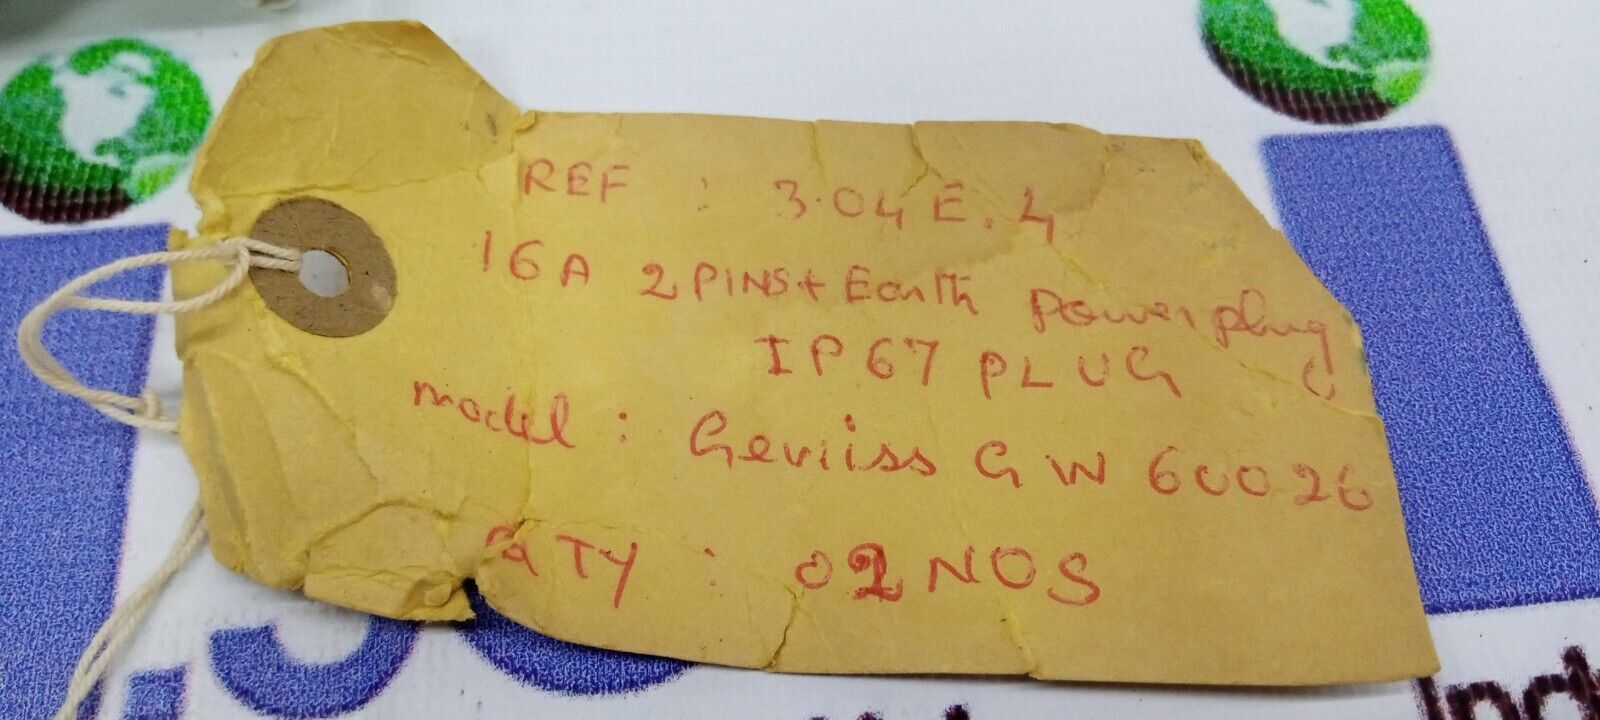 REF : 3.04 E.4
16A 2 PINS + Earth Power plug
IP67 PLUG
model : Gewiss GW 60026
QTY : 02 NOS